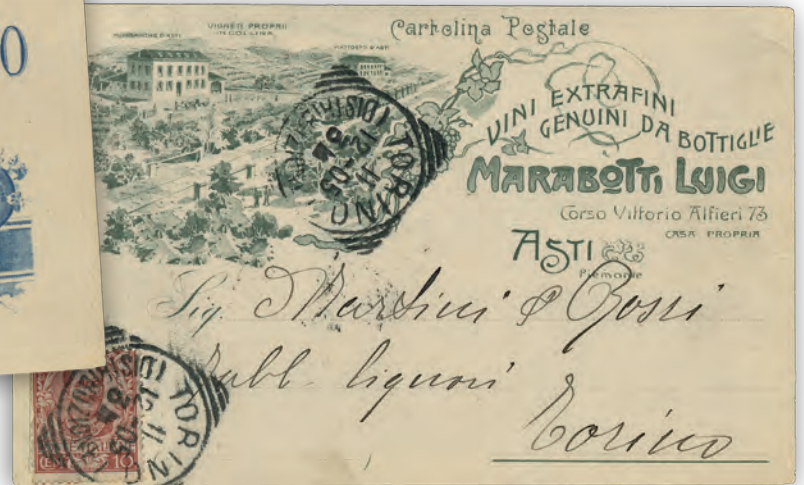 Cartolina Postale
VIGNETI PROPRII
IN COLLINA
VINI EXTRAFINI
GENUINI DA BOTTIGLIE
MARABOTTI LUIGI
Corso Vittorio Alfieri 73
CASA PROPRIA
ASTI
Piemonte
TORINO
12
11-05
Sig. Martini & Rossi
Fabb. liquori
Torino
TORINO
12
11
10
O